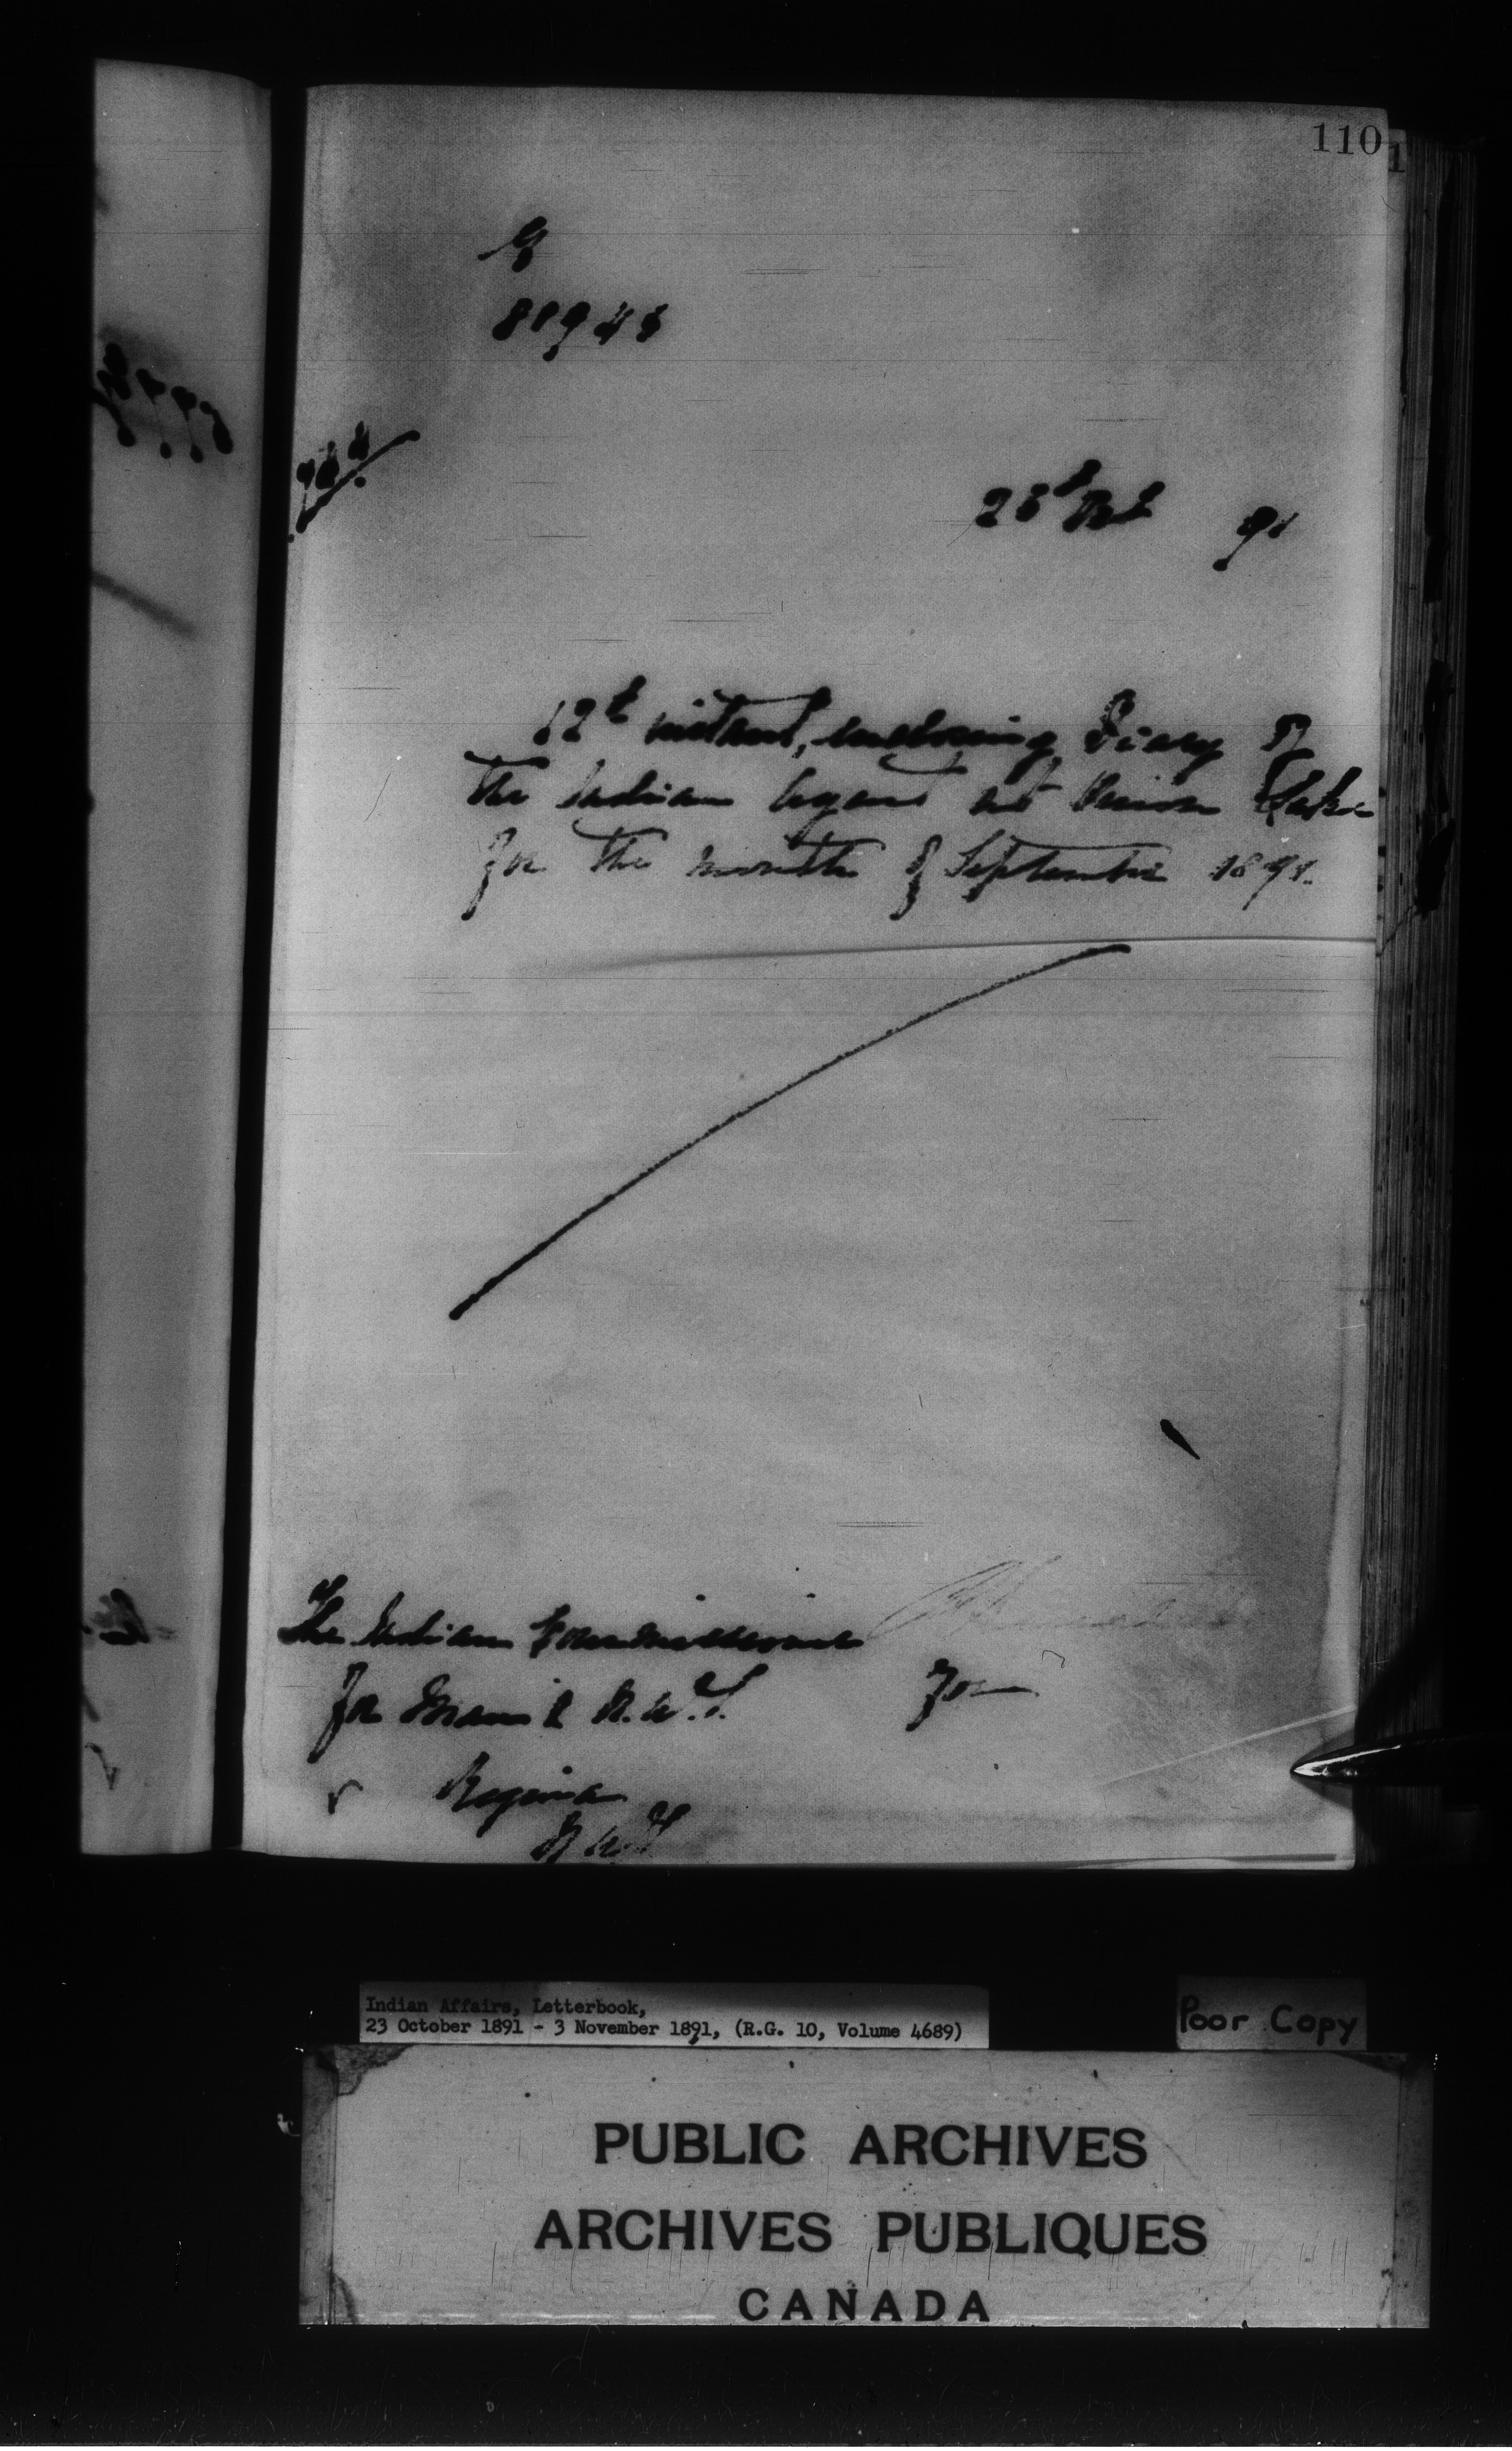 110
88948
23d Oct 91
12t instant, enclosing Diary of
the Indian Agent at Onion Lake
for the month of September 1891.
The Indian Commissioner
for Man: & N.W.T.
For
Regina
N W T
Indian Affairs, Letterbook,
23 October 1891 - 3 November 1891, (R.G. 10, Volume 4689)
Poor Copy
PUBLIC ARCHIVES
ARCHIVES PUBLIQUES
CANADA